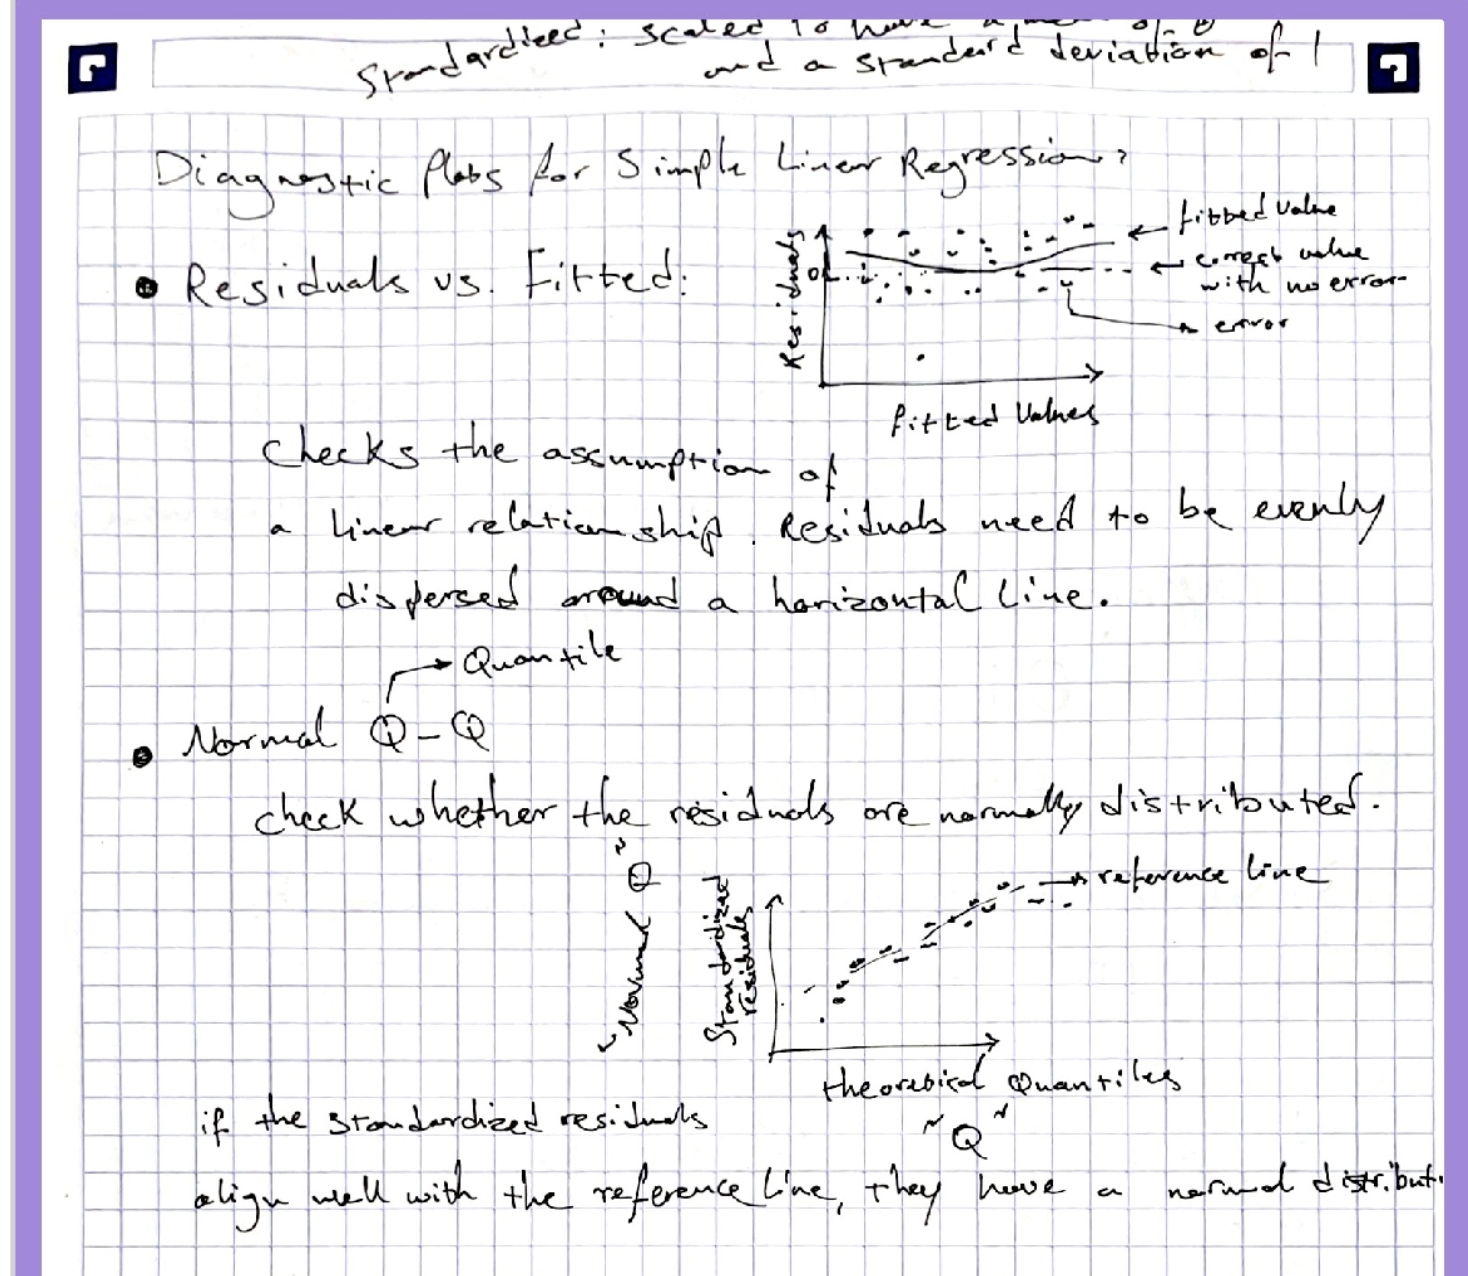 Standardized: scaled to have a mean of 0
and a standard deviation of 1
Diagnostic Plots for Simple Linear Regression:
• Residuals vs. Fitted:
Residuals
0
fitted value
correct value
with no error
error
fitted values
checks the assumption of
a linear relationship. Residuals need to be evenly
dispersed around a horizontal line.
Quantile
• Normal Q-Q
check whether the residuals are normally distributed.
"Normal Q"
Standardized
residuals
reference line
theoretical Quantiles
"Q"
if the standardized residuals
align well with the reference line, they have a normal distributi